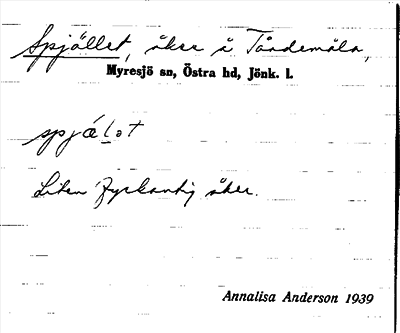 Spjället, åker å Tåndemåla,
Myresjö sn, Östra hd, Jönk. l.
spjälət
Liten fyrkantig åker.
Annalisa Anderson 1939